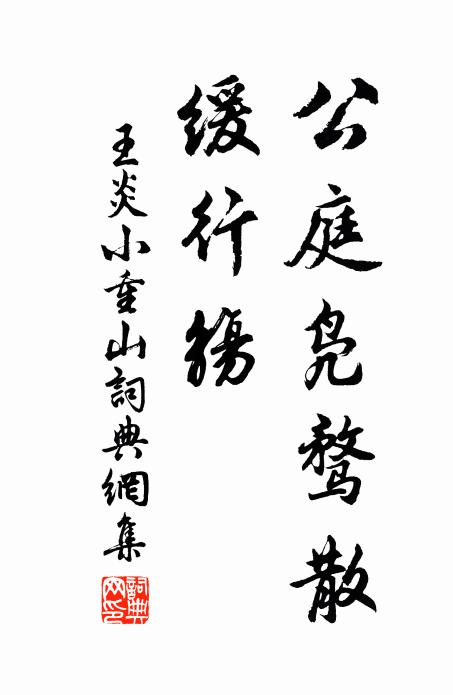 公庭凫鹜散
缓行觞
王炎小重山詞典網集
詞典网印